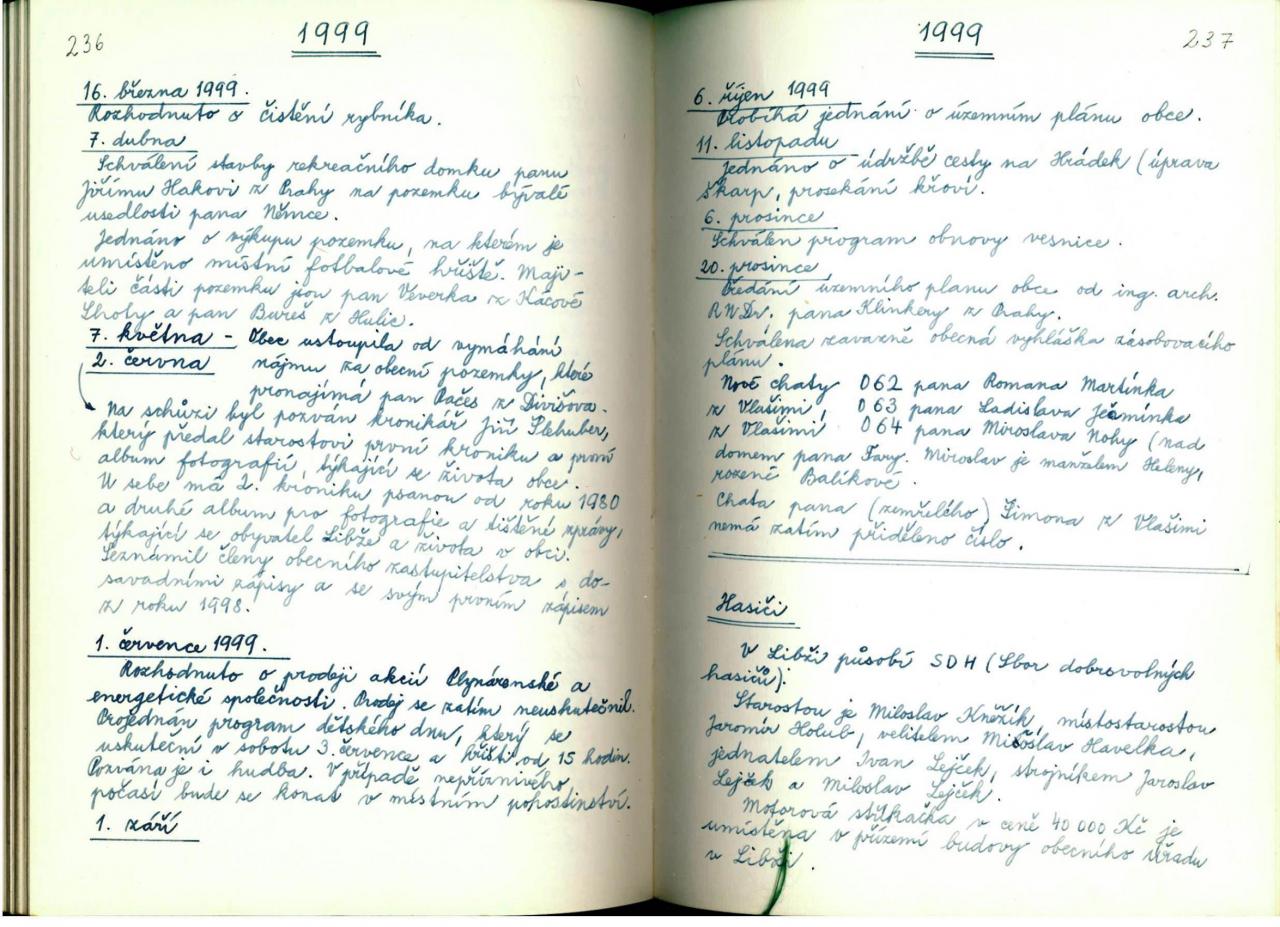 236
1999
16. března 1999.
Rozhodnuto o čistění rybníka.
7. dubna
Schválení stavby rekreačního domku panu
Jiřímu Hakovi z Prahy na pozemku bývalé
usedlosti pana Němce.
Jednáno o výkupu pozemku, na kterém je
umístěno místní fotbalové hřiště. Maji-
teli části pozemku jsou pan Veverka z Kácové
Lhoty a pan Bureš z Hulic.
7. května - Obec ustoupila od vymáhání
nájmu za obecní pozemky, které
pronajímá pan Pačes z Divišova.
2. června
Na schůzi byl pozván kronikář Jiří Slehuber,
který předal starostovi první kroniku a první
album fotografií, týkající se života obce.
U sebe má 2. kroniku psanou od roku 1980
a druhé album pro fotografie a tištěné zprávy,
týkající se obyvatel Libže a života v obci.
Seznámil členy obecního zastupitelstva s do-
savadními zápisy a se svým prvním zápisem
z roku 1998.
1. července 1999.
Rozhodnuto o prodeji akcií Plynárenské a
energetické společnosti. Prodej se zatím neuskutečnil.
Projednán program dětského dnu, který se
uskuteční v sobotu 3. července a hřišti od 15 hodin.
Pozvána je i hudba. V případě nepříznivého
počasí bude se konat v místním pohostinství.
1. září
1999
237
6. říjen 1999
Probíhá jednání o územním plánu obce.
11. listopadu
Jednáno o údržbě cesty na Hrádek (úprava
škarp, prosekání křoví.
6. prosince
Schválen program obnovy vesnice.
20. prosince
Předání územního planu obce od ing. arch.
RNDr. pana Klinkery z Prahy.
Schválena zavazně obecná vyhláška zásobovacího
plánu.
Nové chaty 062 pana Romana Martínka
z Vlašimi, 063 pana Ladislava Ječmínka
z Vlašimi 064 pana Miroslava Nohy (nad
domem pana Fary. Miroslav je manželem Heleny,
rozené Balíkové.
Chata pana (zemřelého) Šimona z Vlašimi
nemá zatím přiděleno číslo.
Hasiči
V Libži působí SDH (Sbor dobrovolných
hasičů).
Starostou je Miloslav Kněžík, místostarostou
Jaromír Holub, velitelem Miroslav Havelka,
jednatelem Ivan Lejček, strojníkem Jaroslav
Lejček a Miloslav Lejček.
Motorová stříkačka v ceně 40 000 Kč je
umístěna v přízemí budovy obecního úřadu
v Libži.